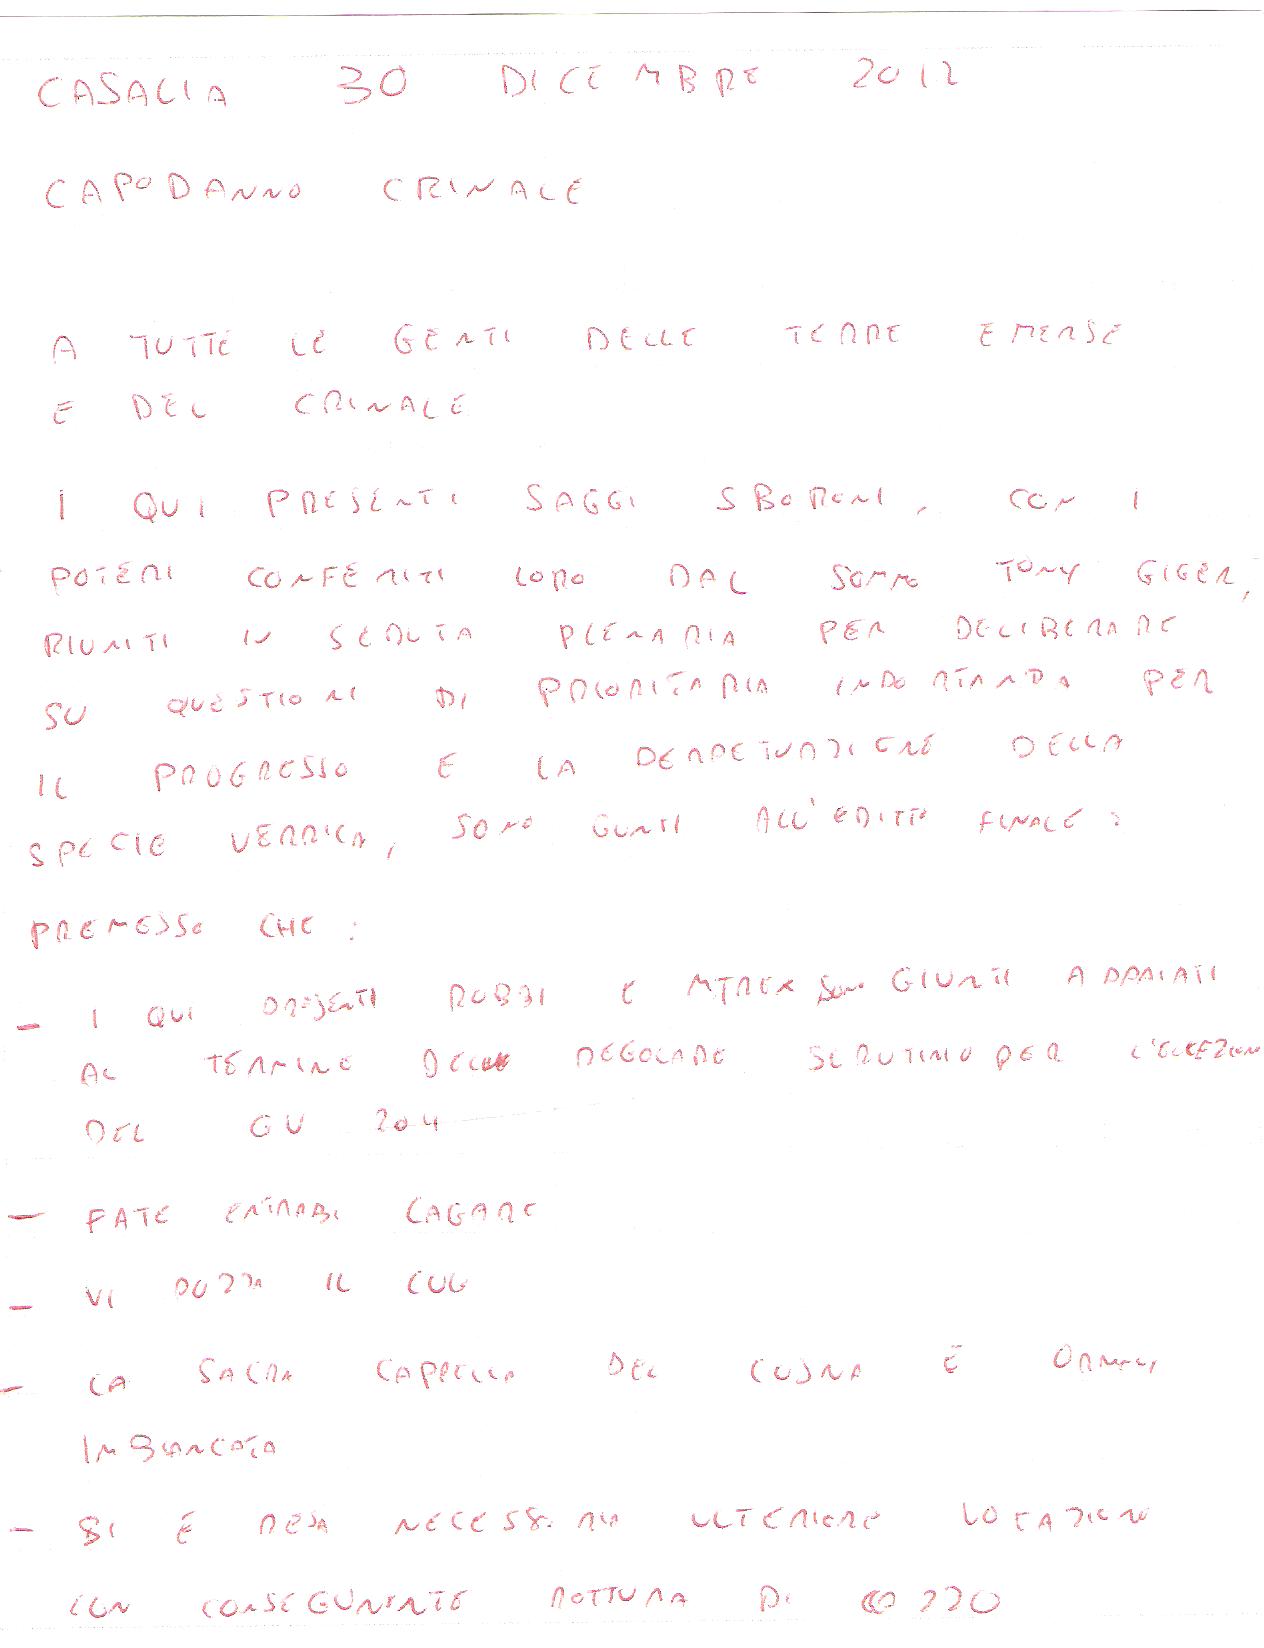 CASALIA 30 DICEMBRE 2012
CAPODANNO CRINALE
A TUTTE LE GENTI DELLE TERRE EMERSE
E DEL CRINALE
I QUI PRESENTI SAGGI SBORONI, CON I
POTERI CONFERITI LORO DAL SOMMO TONY GIGER,
RIUNITI IN SEDUTA PLENARIA PER DELIBERARE
SU QUESTIONI DI PRIORITARIA PER
IL PROGRESSO E LA DELLA
SPECIE VERRICA, SONO GIUNTI ALL'EDITTO FINALE:
PREMESSO CHE:
- I QUI PRESENTI ROBBI E MTREK SONO GIUNTI APPAIATI
AL TERMINE DEL REGOLARE SCRUTINIO PER L'ELEZION
DEL GU 204
- FATE ENTRABI CAGARE
- VI PUZZA IL CUG
- LA SACRA CAPPELLA DEL CUSNA E ORMAI
IMBIANCATA
- SI E RESA NECESSARIA ULTERIORE LOCAZION
CON ROTTURA DI